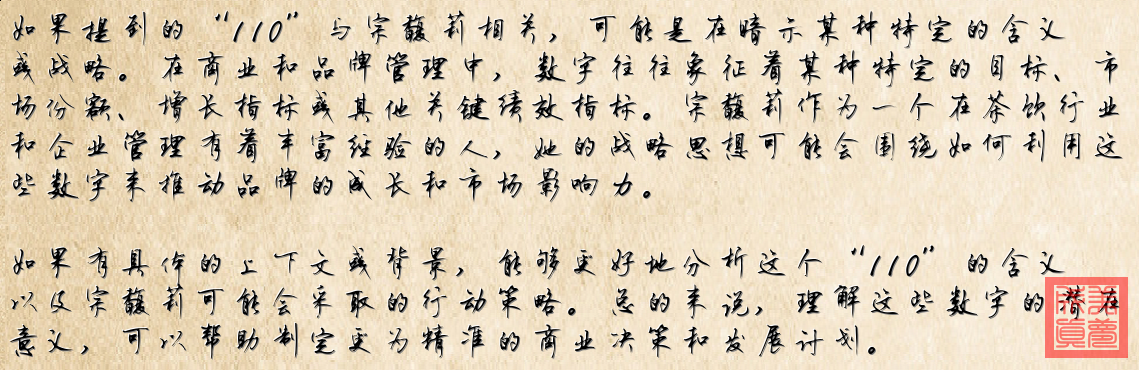 如果提到的“110”与宗馥莉相关，可能是在暗示某种特定的含义
或战略。在商业和品牌管理中，数字往往象征着某种特定的目标、市
场份额、增长指标或其他关键绩效指标。宗馥莉作为一个在茶饮行业
和企业管理有着丰富经验的人，她的战略思想可能会围绕如何利用这
些数字来推动品牌的成长和市场影响力。
如果有具体的上下文或背景，能够更好地分析这个“110”的含义
以及宗馥莉可能会采取的行动策略。总的来说，理解这些数字的潜在
意义，可以帮助制定更为精准的商业决策和发展计划。